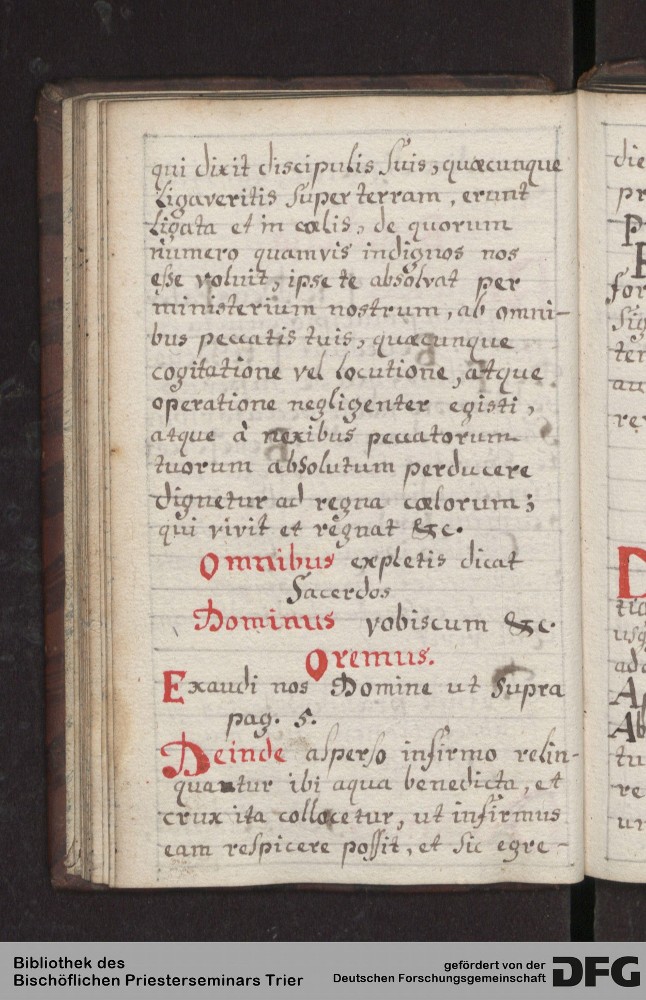 qui dixit discipulis suis; quæcunque
Ligaveritis super terram, erunt
Ligata et in cœlis, de quorum
numero quamvis indignos nos
esse voluit, ipse te absolvat per
ministerium nostrum, ab omni-
bus peccatis tuis, quæcunque
cogitatione vel locutione, atque
operatione negligenter egisti,
atque à nexibus peccatorum
tuorum absolutum perducere
dignetur ad regna cœlorum;
qui vivit et regnat &c.
Omnibus expletis dicat
Sacerdos
Dominus vobiscum &c.
Oremus.
Exaudi nos Domine ut supra
pag. 5.
Deinde asperso infirmo relin-
quantur ibi aqua benedicta, et
crux ita collocetur, ut infirmus
eam respicere possit, et sic egre-
die
pr
P
for
Sig
ter
au
re
D
tio
usq
ado
Ap
Ab
tu
re
un
Bibliothek des
Bischöflichen Priesterseminars Trier
gefördert von der
Deutschen Forschungsgemeinschaft
DFG